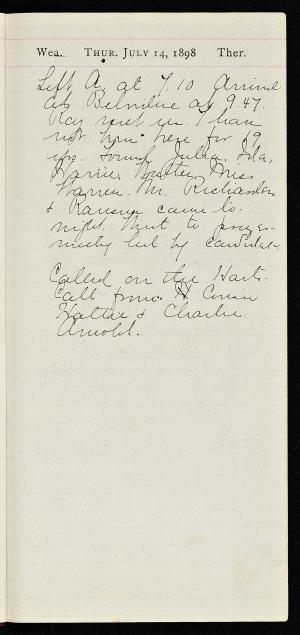 Wea. THUR. JULY 14, 1898 Ther.
Left A. at 7.10. Arrived
at Belvidere at 9.47.
Ray met us. I have
not been here for 19
yrs. Found Julia, Ida,
Harrie, Miss
Warren. Mr. Richardson
& Ransom came to-
night. Went to prayer-
meeting led by candidate
Called on the Harts.
Call from Cousin
Hattie & Charlie
Arnold.